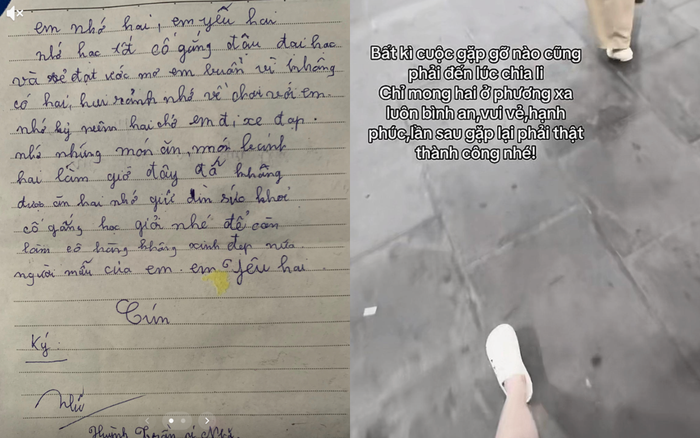 em nhớ hai, em yêu hai
nhớ học tốt cố gắng đậu đại học
và sẽ đạt ước mơ em buồn vì không
có hai, hưu rảnh nhớ về chơi với em.
nhớ kỷ niệm hai chở em đi xe đạp.
nhớ những món ăn, món bánh
hai làm giờ đây đã không
được ăn hai nhớ giữ dìn sức khỏe
cố gắng học giỏi nhé để còn
làm cô hàng không xinh đẹp nữa
người mẫu của em. em yêu hai.
Cún
Ký:
Như
Huỳnh
Bất kì cuộc gặp gỡ nào cũng
phải đến lúc chia li
Chỉ mong hai ở phương xa
luôn bình an,vui vẻ,hạnh
phúc,lần sau gặp lại phải thật
thành công nhé!